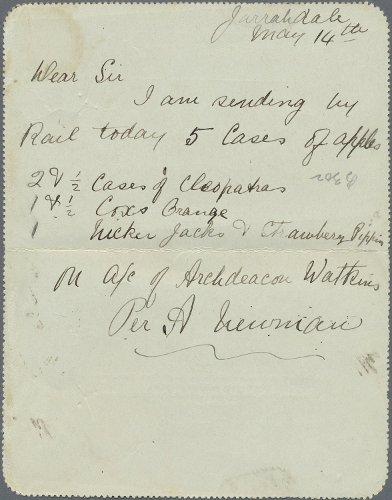 Jarrahdale
May 14th
Dear Sir
I am sending by
Rail today 5 Cases of apples
2 & ½ Cases of Cleopatras
1 & ½ Coxs Orange
1 Nicker Jacks & Strawbery Pippin
On a/c of Archdeacon Watkins
Per A Newman